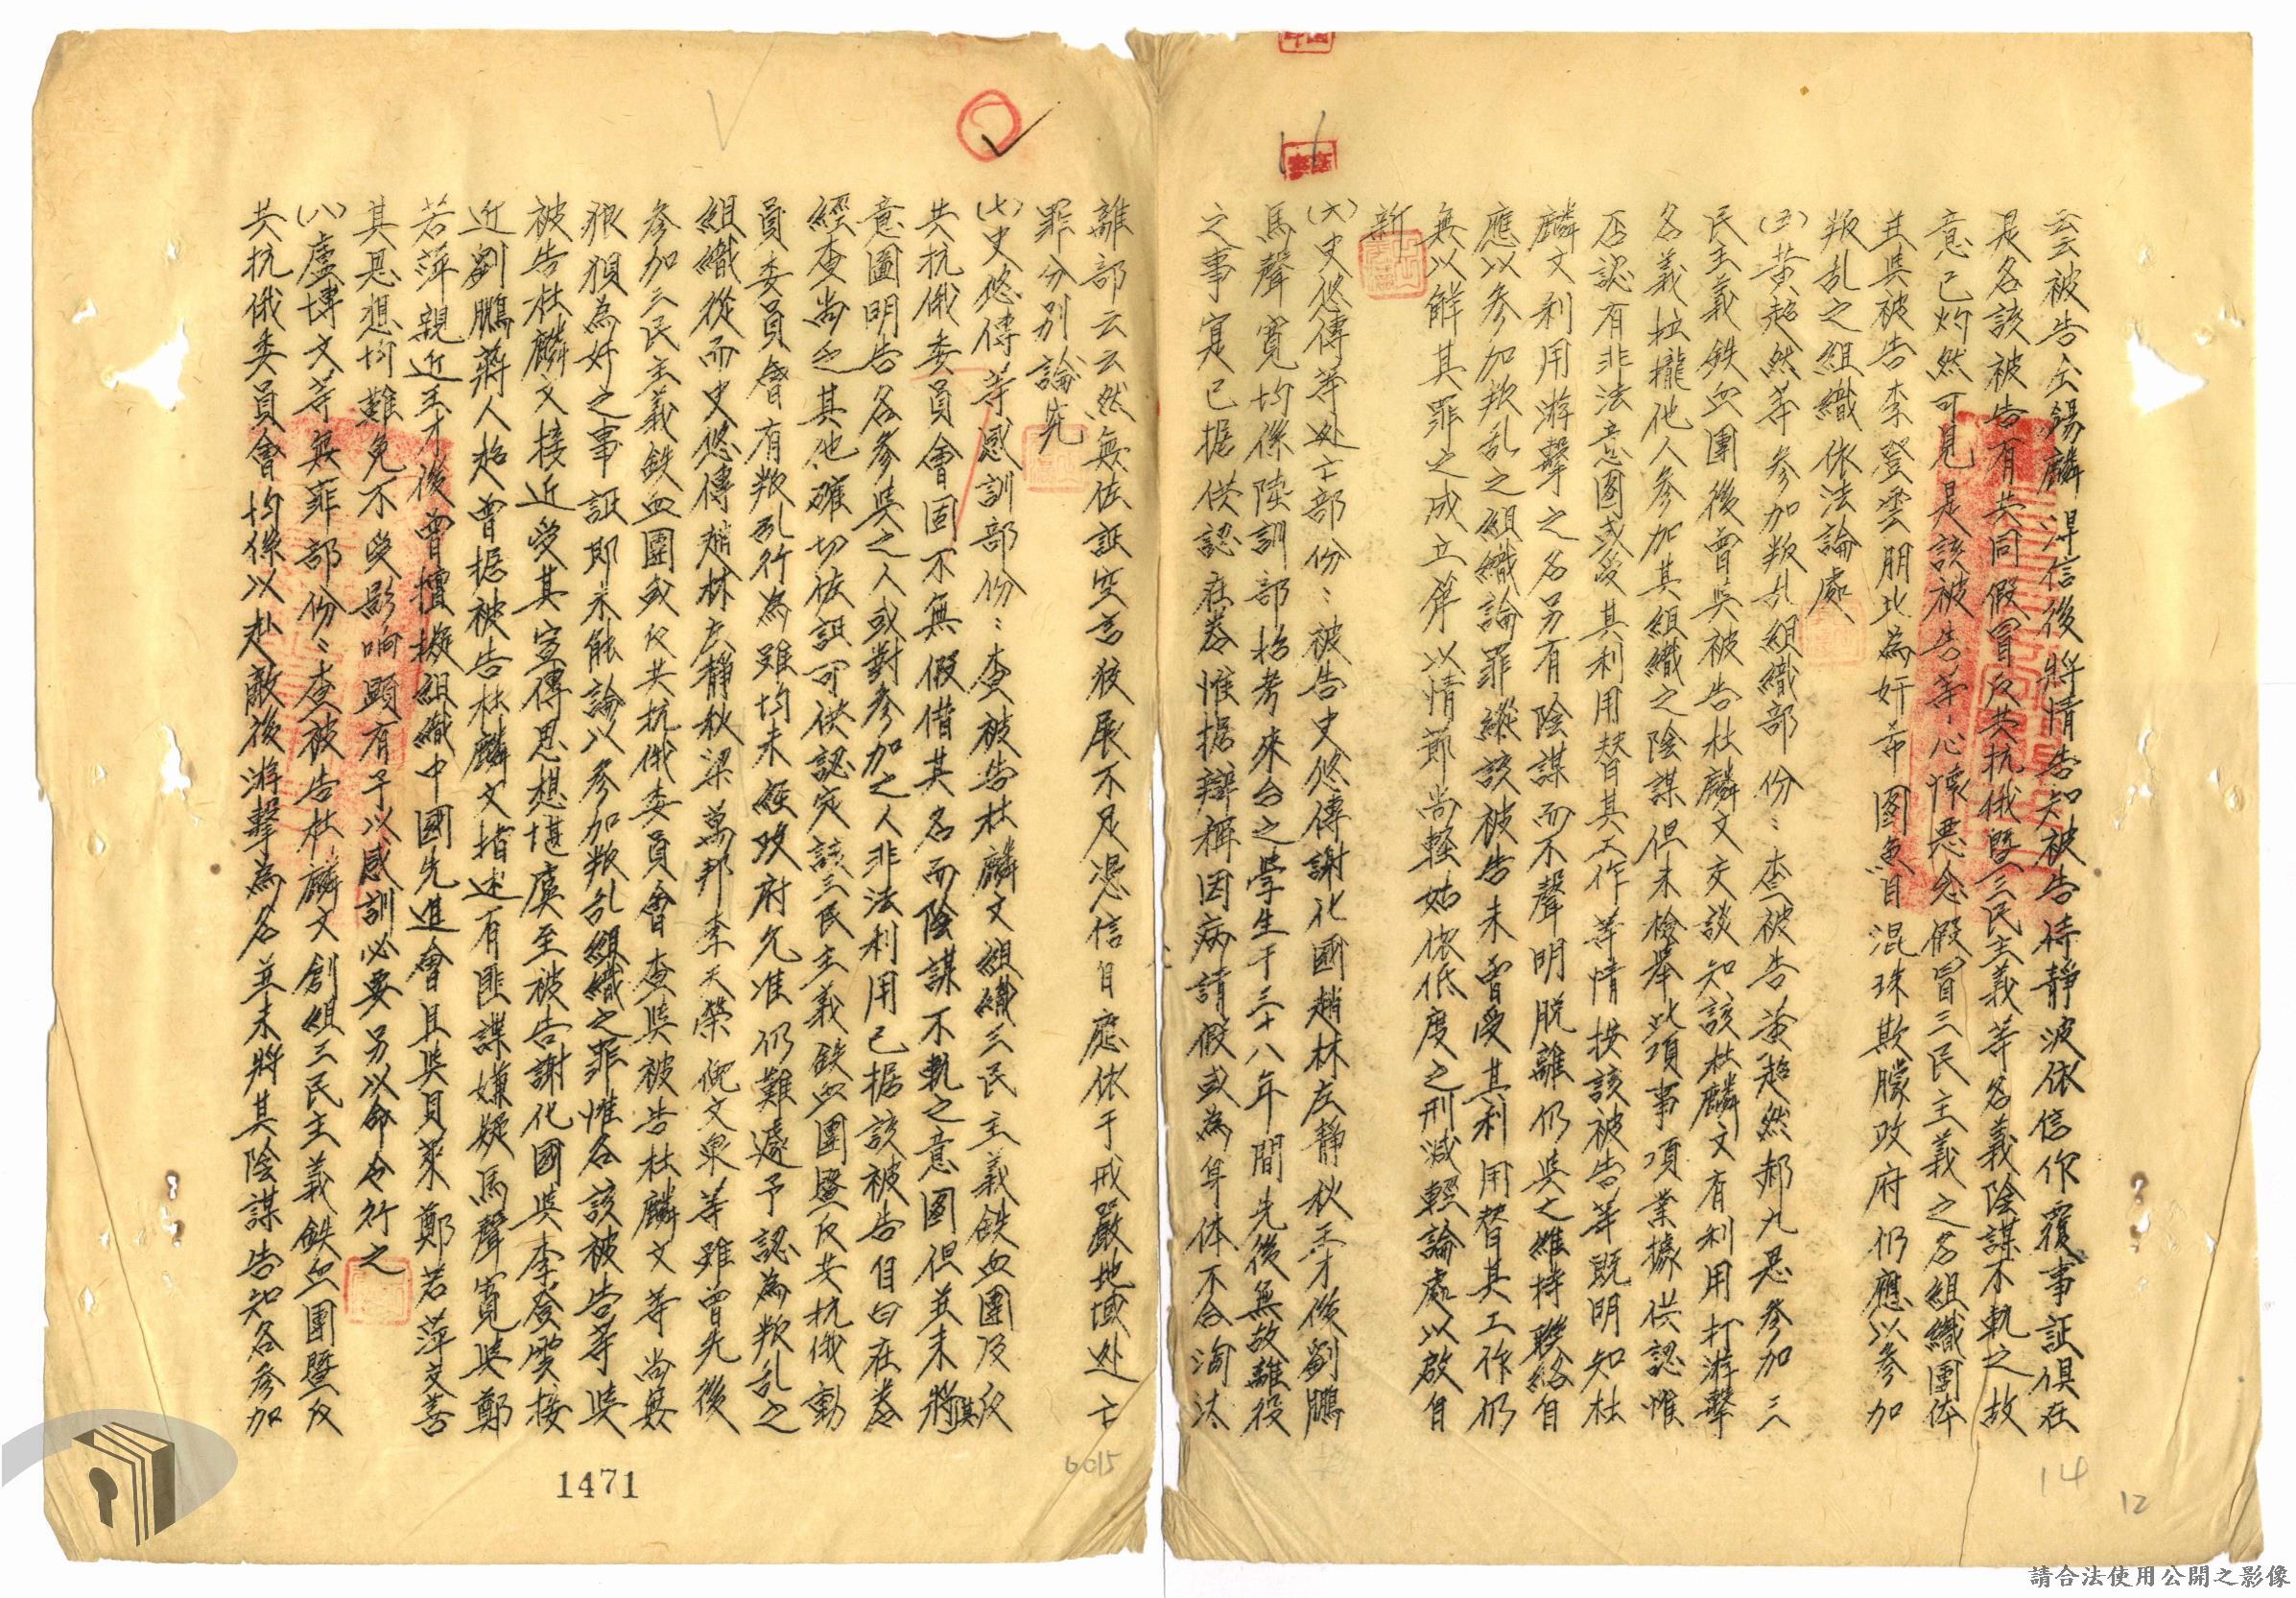 云云被告金錫麟淂信後將情告知被告待靜波依信作覆事証俱在
是各該被告有共同假冒反共抗俄暨三民主義等名義陰謀不軌之故
意已灼然可見是該被告等心懷惡念假冒三民主義之名組織團体
並與被告李登雲朋比為奸希圖魚目混珠欺矇政府仍應以參加
叛乱之組織依法論處
(五)黃超然等參加叛乱組織部份：查被告黃超然郝九思參加三
民主義鉄血團後曾與被告杜麟文交談知該杜麟文有利用打游擊
名義拉攏他人參加其組織之陰謀但未檢舉此項事項業據供認惟
否認有非法意圖或受其利用替其工作等情按該被告等既明知杜
麟文利用游擊之名另有陰謀而不聲明脫離仍與之維持聯絡自
應以參加叛乱之組織論罪縱該被告未曾受其利用替其工作仍
無以解其罪之成立第以情節尚輕姑依低度之刑減輕論處以啟自
新
(六)史悠傳等处亡部份：被告史悠傳謝化國趙林左靜秋王才俊劉鵬
馬聲寬均係陸訓部招考來台之學生于三十八年間先後無故離役
之事寔已据供認在卷惟据辯稱因病請假或為身体不合淘汰
離部云云然無佐証空言狡展不足憑信自應依于戒嚴地域处亡
罪分別論究
(七)史悠傳等感訓部份：查被告杜麟文組織三民主義鉄血團及反
共抗俄委員會固不無假借其名而陰謀不軌之意圖但並未將其
意圖明告各參與之人或對參加之人非法利用已据該被告自白在卷
經查尚乏其他確切佐証可供認定該三民主義鉄血團暨反共抗俄動
員委員會有叛乱行為雖均未經政府允准仍難遽予認為叛乱之
組織從而史悠傳趙林左靜秋梁萬邦李天榮倪文泉等雖曾先後
參加三民主義鉄血團或反共抗俄委員會查與被告杜麟文等尚無
狼狽為奸之事証即未能論以參加叛乱組織之罪惟各該被告等與
被告杜麟文接近受其宣傳思想堪虞至被告謝化國與李登雲接
近劉鵬蔣人超曾据被告杜麟文指述有匪諜嫌疑馬聲寬與鄭
若萍親近王才俊曾擅擬組織中國先進會且與貝萊鄭若萍交善
其思想均難免不受影响顯有予以感訓必要另以命令行之
(八)盧博文等無罪部份：查被告杜麟文創組三民主義鉄血團暨反
共抗俄委員會均係以赴敵後游擊為名並未將其陰謀告知各參加
14
12
6015
1471
請合法使用公開之影像